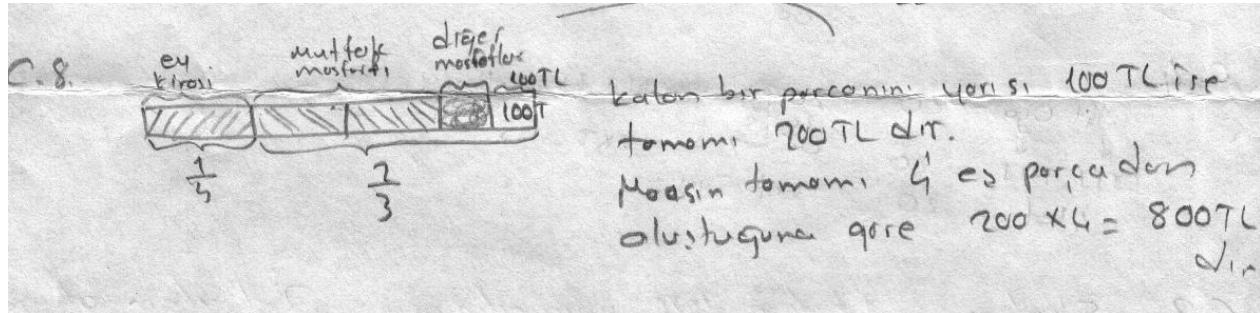 C.8.
ev kirası
mutfak masrafı
diğer masraflar
100TL
100T
1/4
2/3
Kalan bir parçanın yarısı 100 TL ise
tamamı 200 TL dir.
Maaşın tamamı 4 eş parçadan
oluştuğuna göre 200 x 4 = 800TL
dir